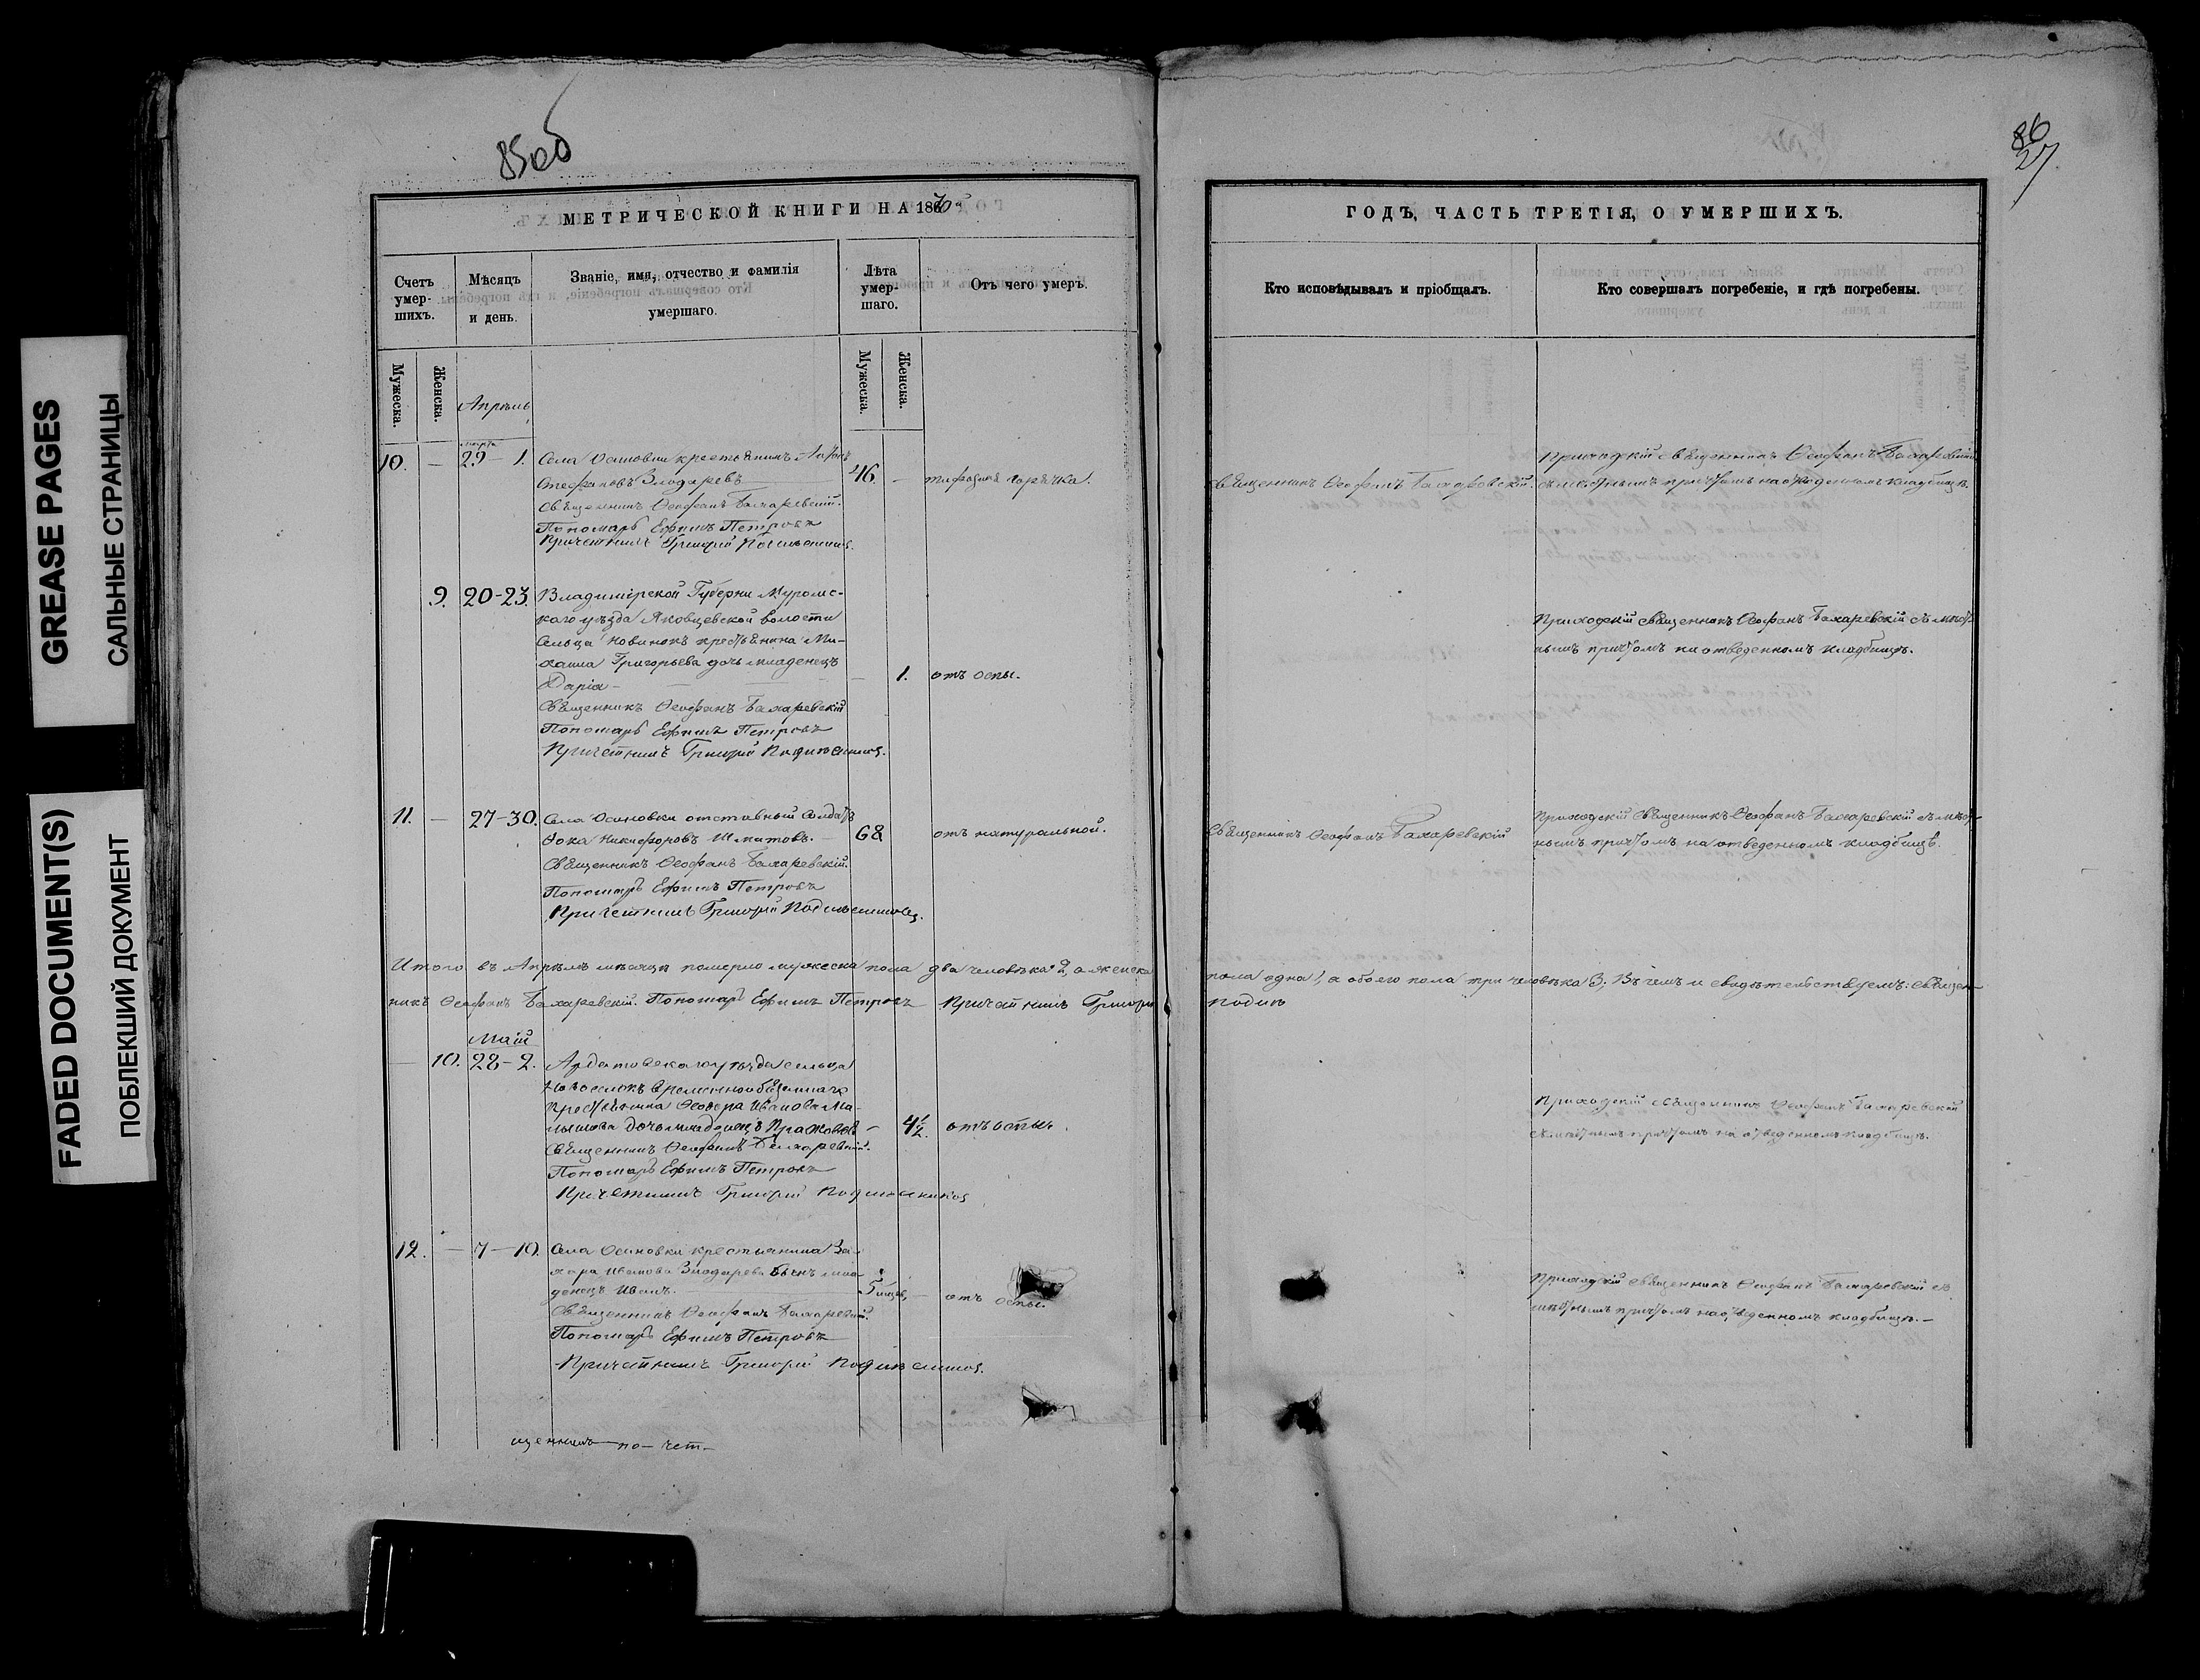 GREASE PAGES
САЛЬНЫЕ СТРАНИЦЫ
FADED DOCUMENT(S)
ПОБЛЕКШИЙ ДОКУМЕНТ
85об
МЕТРИЧЕСКОЙ КНИГИ НА 1870
Счетъ умер-шихъ.
Мѣсяцъ и день.
Званіе, имя, отчество и фамилія умершаго.
Лѣта умер-шаго.
Отъ чего умеръ.
Мужеска.
Женска.
Мужеска.
Женска.
Апрѣль
марта
10. — 29 — 1. Села Осиновки крестьянинъ
Стефановъ Злодаревъ 46. — горячка.
Священникъ Ѳеофанъ Бахаревскій.
Пономарь Ефимъ Петровъ
Причетникъ Григорій
9. 20-23. Владимірской Губерни Муромс-
каго уѣзда Яковцевской волости
Сельца Новинокъ крестьянина Ми-
хаила Григорьева дочь младенецъ
Дарія — — 1. отъ оспы.
Священникъ Ѳеофанъ Бахаревскій
Пономарь Ефимъ Петровъ
Причетникъ Григорій
11. — 27-30. Села Осиновки отставный солдатъ
Фока Никифоровъ Шматовъ. — 68 отъ натуральной.
Священникъ Ѳеофанъ Бахаревскій.
Пономарь Ефимъ Петровъ
Причетникъ Григорій
Итого въ Апрѣлѣ мѣсяцѣ померло мужеска пола два человѣка 2, а женска
никъ Ѳеофанъ Бахаревскій. Пономарь Ефимъ Петровъ Причетникъ Григорій
Май
— 10. 28-2. Ардатовскаго уѣзда сельца
Новоселокъ временнообязаннаго
крестьянина Ѳеодора Иванова Ма-
лышева дочь младенецъ — 4½. отъ оспы.
Священникъ Ѳеофанъ Бахаревскій.
Пономарь Ефимъ Петровъ
Причетникъ Григорій
12. — 7-10. Села Осиновки крестьянина За-
хара Иванова Злодарева сынъ мла-
денецъ Иванъ. 5 мѣсяц. — отъ оспы.
Священникъ Ѳеофанъ Бахаревскій.
Пономарь Ефимъ Петровъ
Причетникъ Григорій
щенникъ — по — чет —
86
27
ГОДЪ, ЧАСТЬ ТРЕТІЯ, О УМЕРШИХЪ.
Кто исповѣдывалъ и пріобщалъ.
Кто совершалъ погребеніе, и гдѣ погребены.
Приходскій священникъ Ѳеофанъ Бахаревскій
Священникъ Ѳеофанъ Бахаревскій. съ мѣстнымъ причтомъ на отведенномъ кладбищѣ.
Приходскій священникъ Ѳеофанъ Бахаревскій съ мѣст-
нымъ причтомъ на отведенномъ кладбищѣ.
Священникъ Ѳеофанъ Бахаревскій
Приходскій священникъ Ѳеофанъ Бахаревскій съ мѣст-
нымъ причтомъ на отведенномъ кладбищѣ.
пола одна 1, а обоего пола три человѣка 3. Въ чемъ и свидѣтельствуемъ: Священ-
Приходскій священникъ Ѳеофанъ Бахаревскій
съ мѣстнымъ причтомъ на отведенномъ кладбищѣ.
Приходскій священникъ Ѳеофанъ Бахаревскій съ
мѣстнымъ причтомъ на отведенномъ кладбищѣ. —